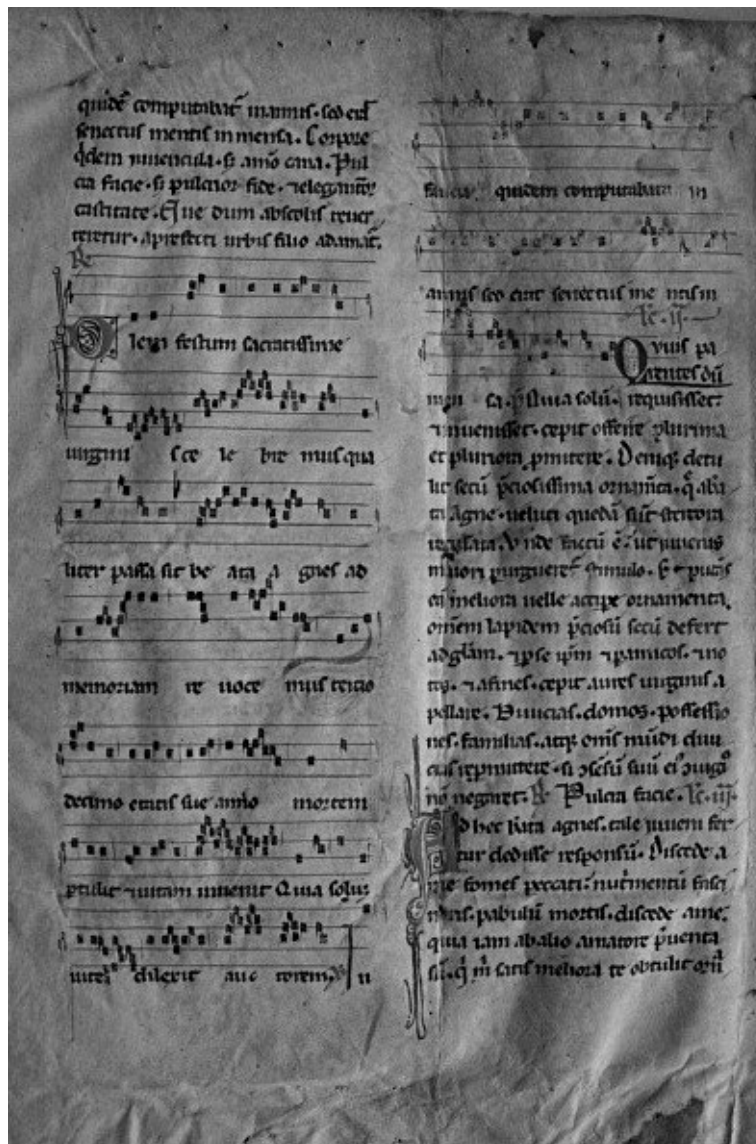 quidē computabat̄ in annis. sed erat
senectus mentis inmensa. Corpore
qͥdem iuuencula. si animo cana. Pul
cra facie. si pulcrior fide. ⁊elegantior
castitate. Que dum a scolis reuer
teretur. aprefecti urbis filio adamat̄.
R̄
Diem festum sacratissime
uirgini s ce le bre mus qua
liter passa sit be ata a gnes ad
memoriam re uoce mus tercio
decimo etatis sue anno mortem
p̄didit ⁊uitam inuenit Quia solum
uite dilexit auc torem. V̄ In
fancia quidem computabatur in
annis sed erat senectus me ntis in
Le. ij.
Q uius pa
rentes dū
men sa. p̄s. Quia solū. requisisset.
⁊ inuenisset. cepit offerre plurima
et pluriora p̄mittere. Deniqꝫ detu
lit secū p̄ciosissima ornam̄ta. q̄ a b̄a
ta Agne. ueluti quedā sūt stercora
recusata. Vnde factū ē. ut iuuenis
maiori p̄urgueret̄ stimulo. ⁊ putās
eā meliora uelle accipe ornamenta.
omēm lapidem p̄ciosū secū defert
ad gl̄am. ⁊ p se ip̄m ⁊ p amicos. ⁊ no
tos. ⁊ afines. cepit aures uirginis a
pellare. Diuicias. domos. possessio
nes. familias. atqꝫ om̄s mūdi diui
cias repmittere. si ɔsēsū suū eiꝰ ɔiugͦ
nō negaret. R̄ Pulcra facie. Le. iij.
Ad hec b̄ata agnes. tale iuueni fer
tur dedisse responsū. Discede a
me fomes peccati. nut̄mentū faci
noris. pabulū mortis. discede a me.
quia iam ab alio amatore p̄uenta
sū. qͥ m̄ satis meliora te obtulit orn̄